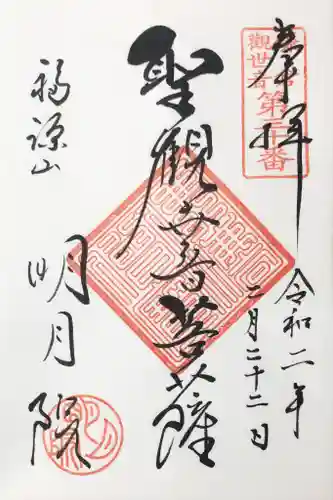 奉拝
令和二年
二月二十二日
聖観世音菩薩
福源山
明月院
観世音
第三十番